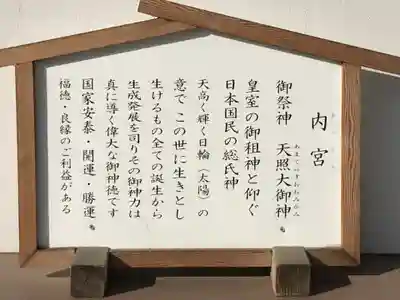 内宮
御祭神 天照大御神
あまてらすおおみかみ
皇室の御祖神と仰ぐ
日本国民の総氏神
天高く輝く日輪（太陽）の
意で この世に生きとし
生けるもの全ての誕生から
生成発展を司りその御神力は
真に尊く偉大な御神徳です
国家安泰・開運・勝運
福徳・良縁のご利益がある